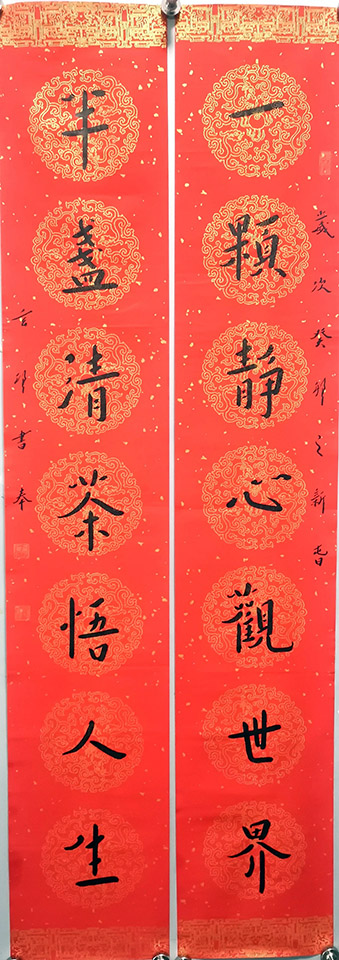 一顆靜心觀世界
歲次癸卯之新春
半盞清茶悟人生